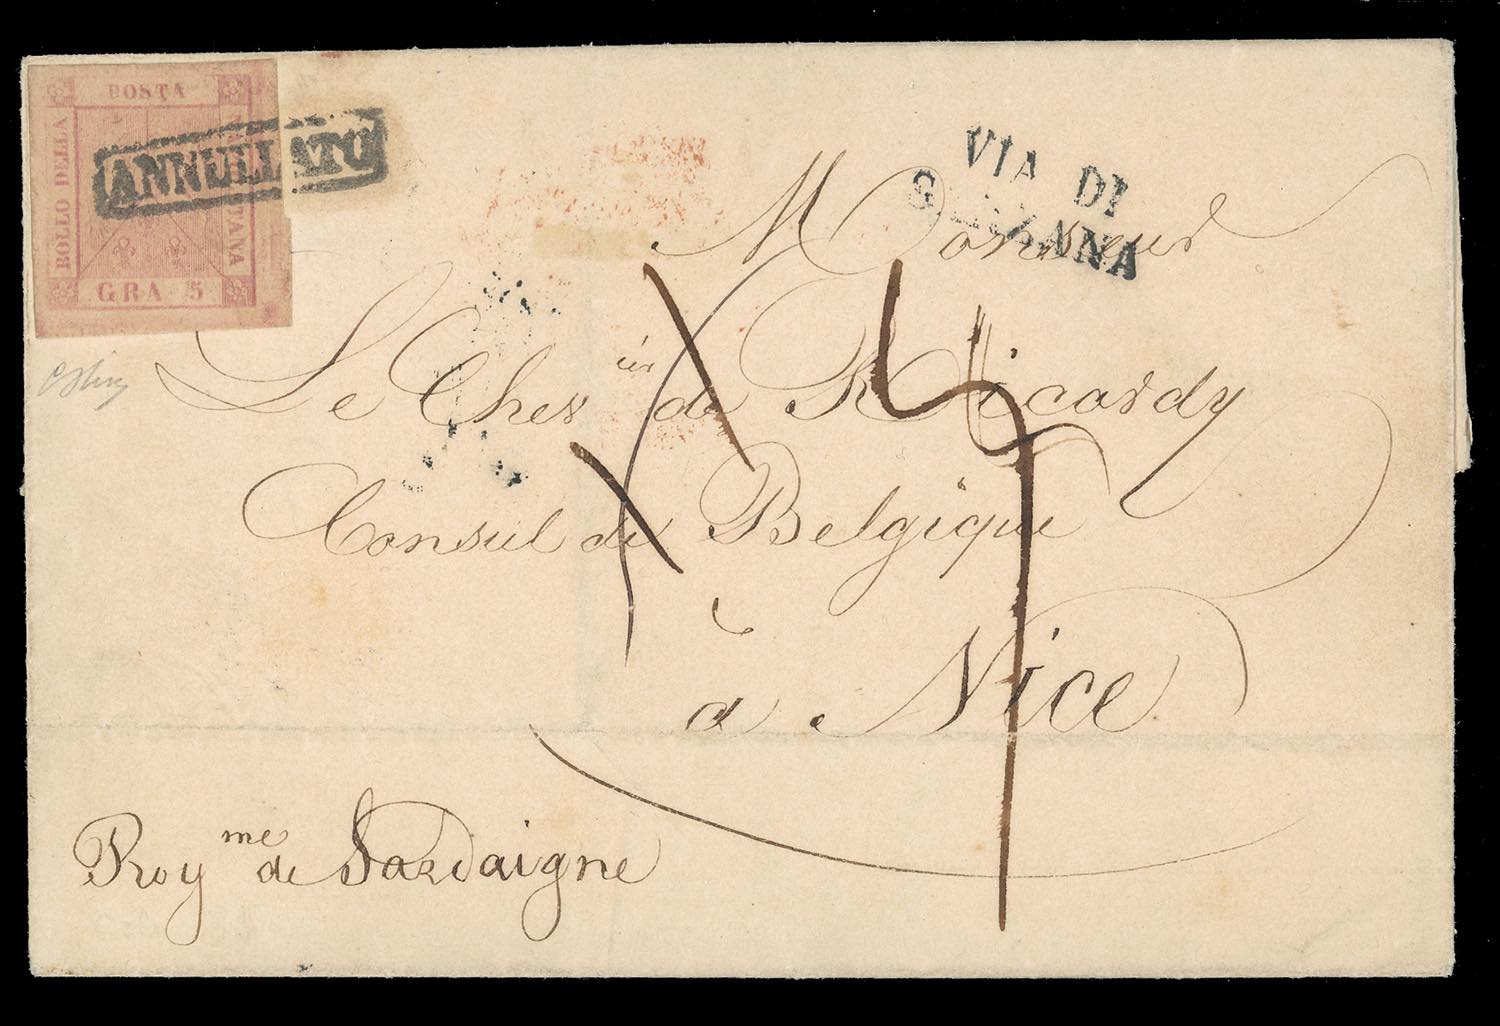 POSTA
BOLLO DELLA
GRA 5
ANNULLATO
VIA DI
Monsieur
Le Chev ier de Ricardy
Consul de Belgique
à Nice
Roy me de Sardaigne